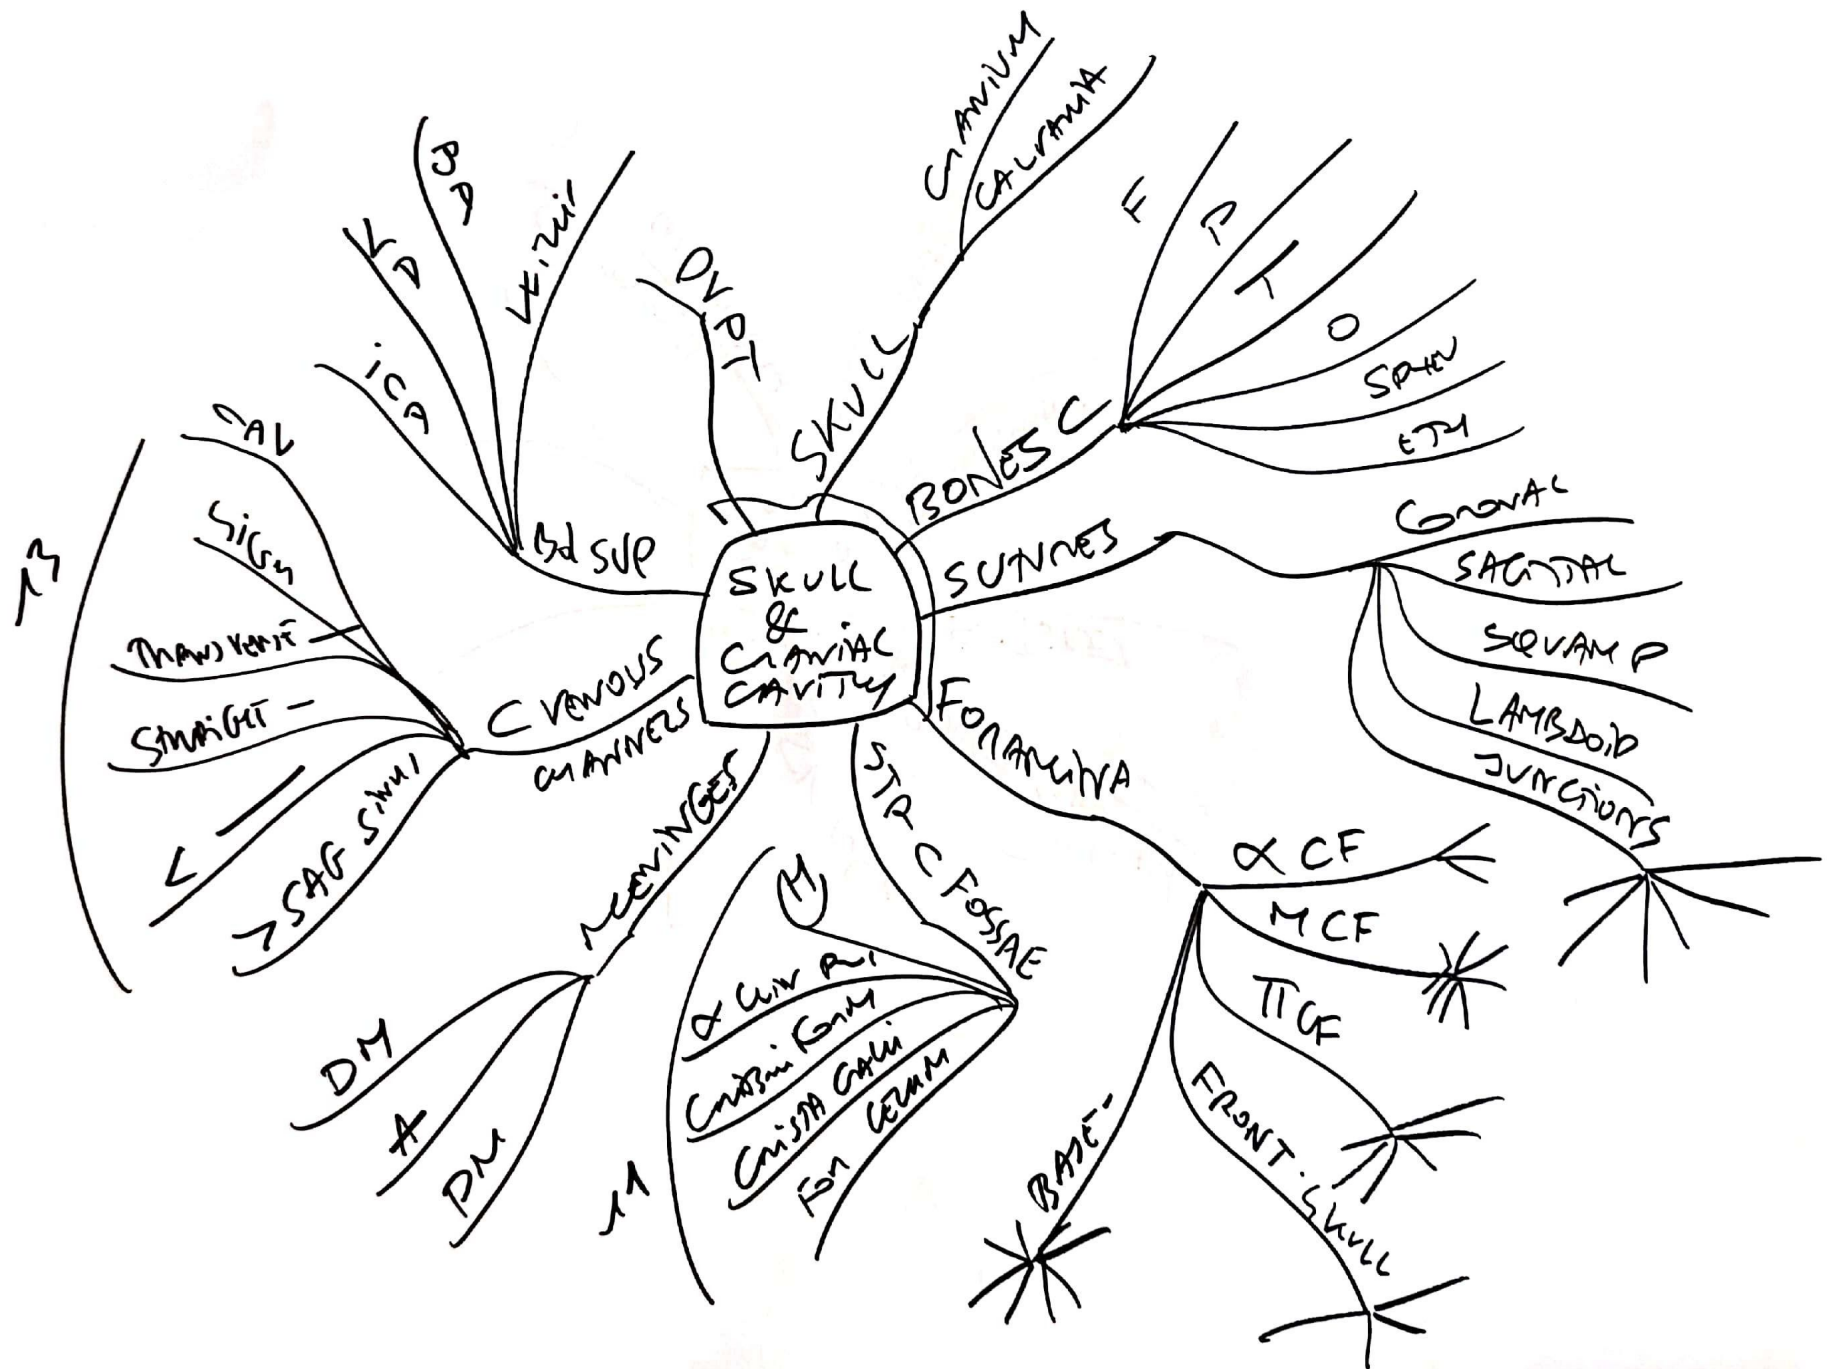 SKULL
&
CRANIAL
CAVITY
SKULL
CRANIUM
CALVARIA
BONES C
F
P
T
O
SPHEN
ETH
SUTURES
CORONAL
SAGITTAL
SQUAM P
LAMBDOID
JUNCTIONS
FORAMINA
α CF
MCF
ΠCF
FRONT. SKULL
BASE
STR C FOSSAE
CRISTA GALLI
FOR CECUM
11
MEENINGES
DM
A
PM
C VENOUS
CHANNELS
CAV
SIGM
TRANSVERSE
STRAIGHT -
<
> SAG SINUS
13
Bd SUP
ICA
VA
BA